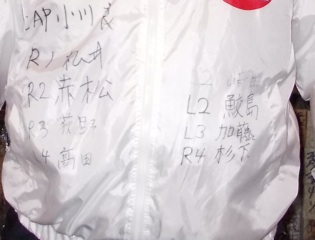 CAP 小川
R1 松井
R2 赤松
R3
R4 高田
L2 鮫島
L3 加藤
R4 杉下